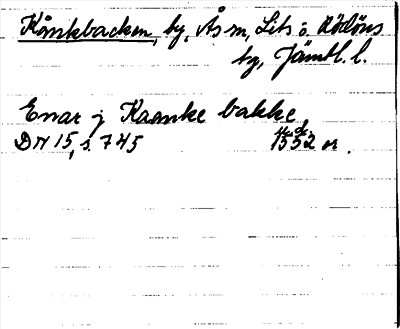 Kånkbacken, by, Ås sn, Lits o. Rödöns
tg, Jämtl. l.
Enar j Kaanke bakke,
DN 15, s. 745 1552 or.